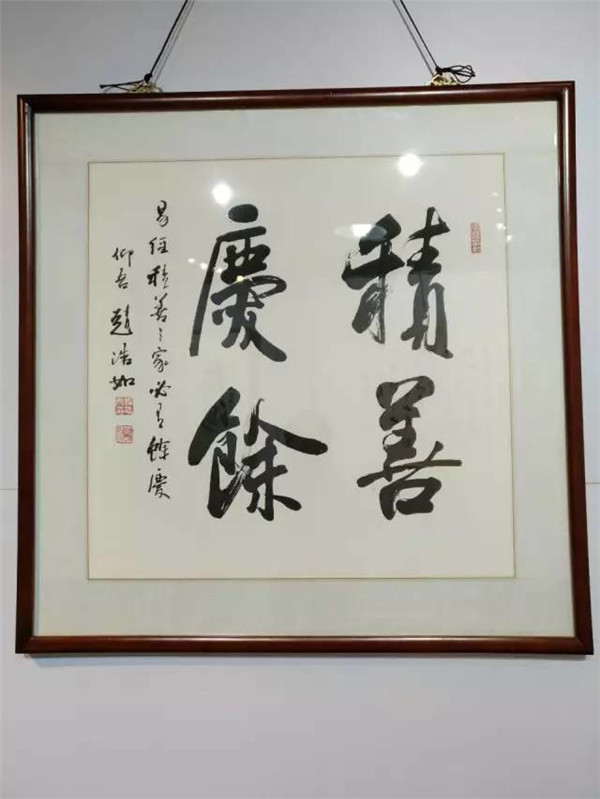 積善
慶餘
易經積善之家必有餘慶
仰吾 趙浩如